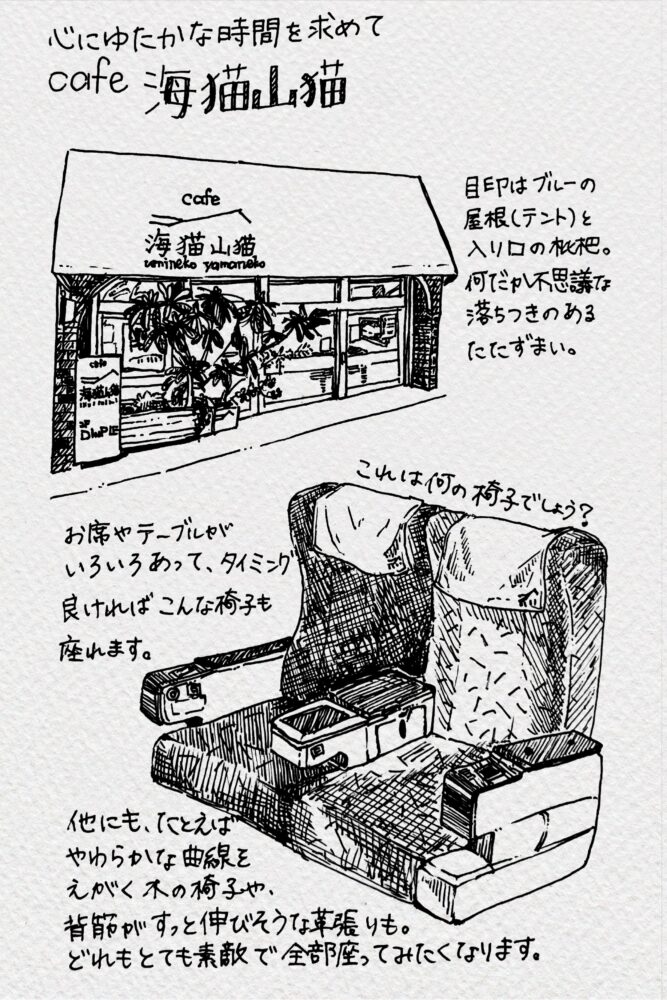 心にゆたかな時間を求めて
cafe 海猫山猫
cafe
海猫山猫
umineko yamaneko
目印はブルーの
屋根(テント)と
入り口の枇杷。
何だか不思議な
落ちつきのある
たたずまい。
cafe
海猫山猫
これは何の椅子でしょう?
お席やテーブルが
いろいろあって、タイミング
良ければこんな椅子も
座れます。
他にも、たとえば
やわらかな曲線を
えがく木の椅子や、
背筋がすっと伸びそうな革張りも。
どれもとても素敵で全部座ってみたくなります。